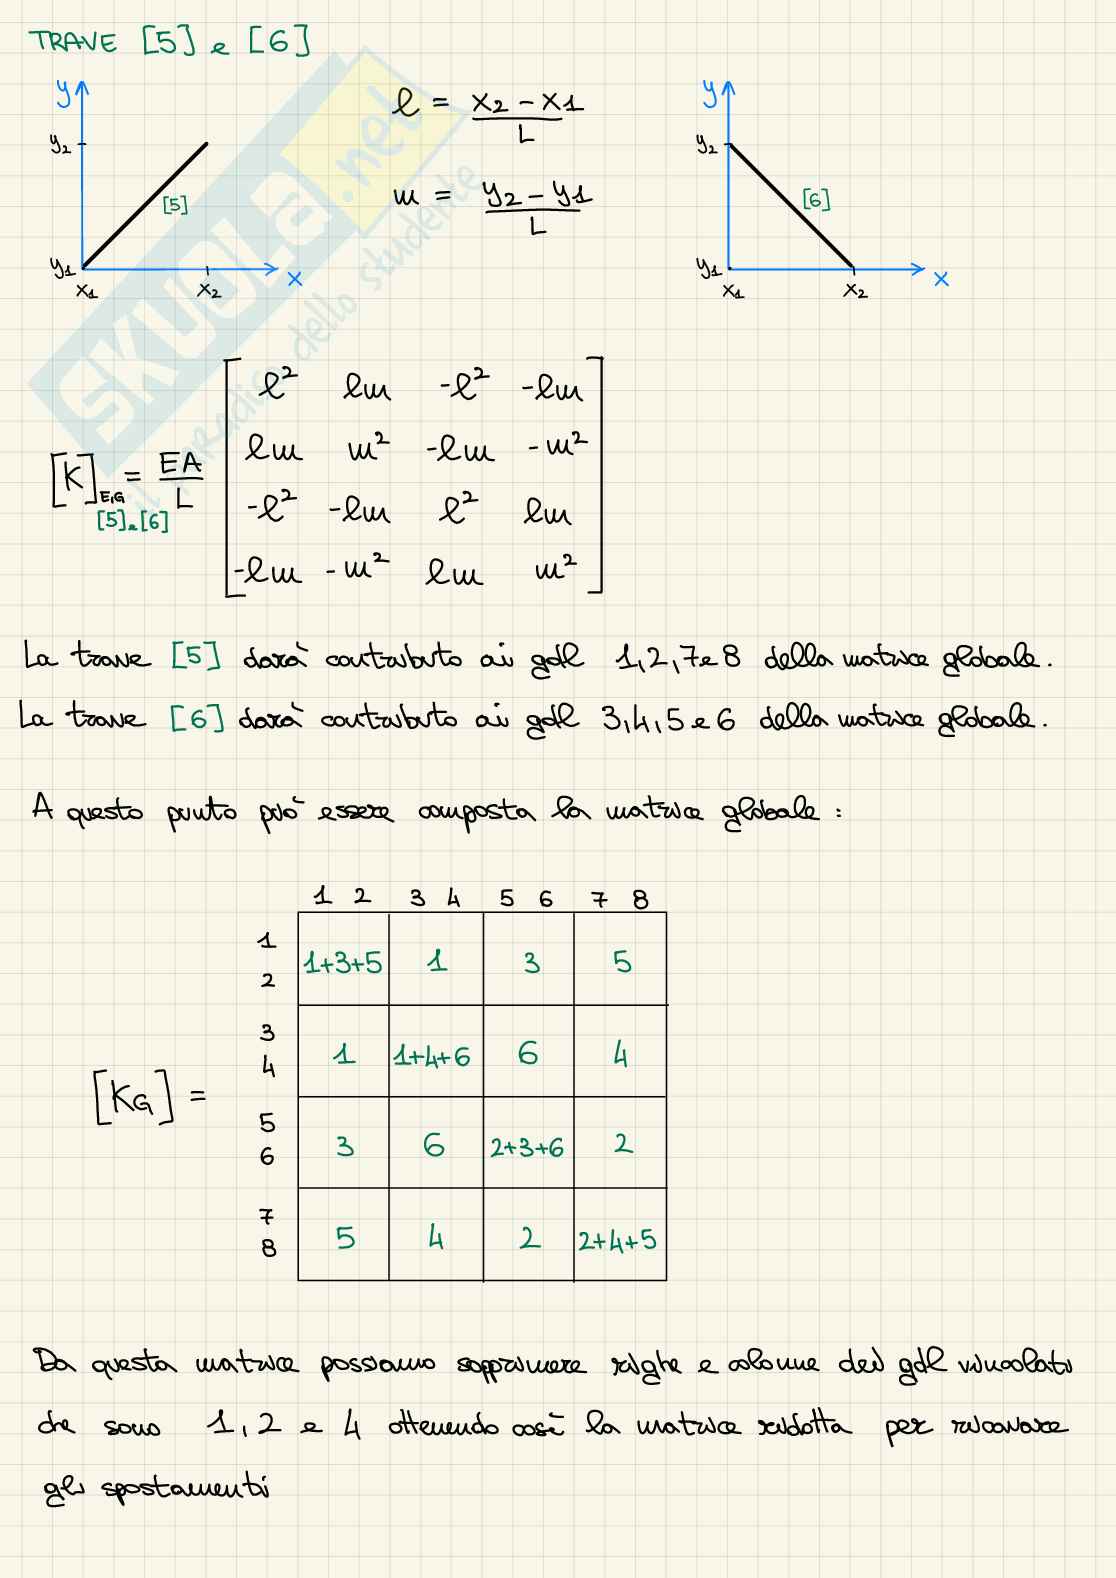 TRAVE [5] e [6]
y
y2
[5]
y1
x1
x2
x
l = x2 - x1 / L
m = y2 - y1 / L
y
y2
[6]
y1
x1
x2
x
SKUOLA.net
il paradiso dello studente
[K] E,G [5] e [6] = EA / L
l² lm -l² -lm
lm m² -lm -m²
-l² -lm l² lm
-lm -m² lm m²
La trave [5] darà contributo ai gdl 1,2,7 e 8 della matrice globale.
La trave [6] darà contributo ai gdl 3,4,5 e 6 della matrice globale.
A questo punto può essere composta la matrice globale :
1 2 3 4 5 6 7 8
[KG] =
1 2 1+3+5 1 3 5
3 4 1 1+4+6 6 4
5 6 3 6 2+3+6 2
7 8 5 4 2 2+4+5
Da questa matrice possiamo sopprimere righe e colonne dei gdl vincolati
che sono 1,2 e 4 ottenendo così la matrice ridotta per ricavare
gli spostamenti